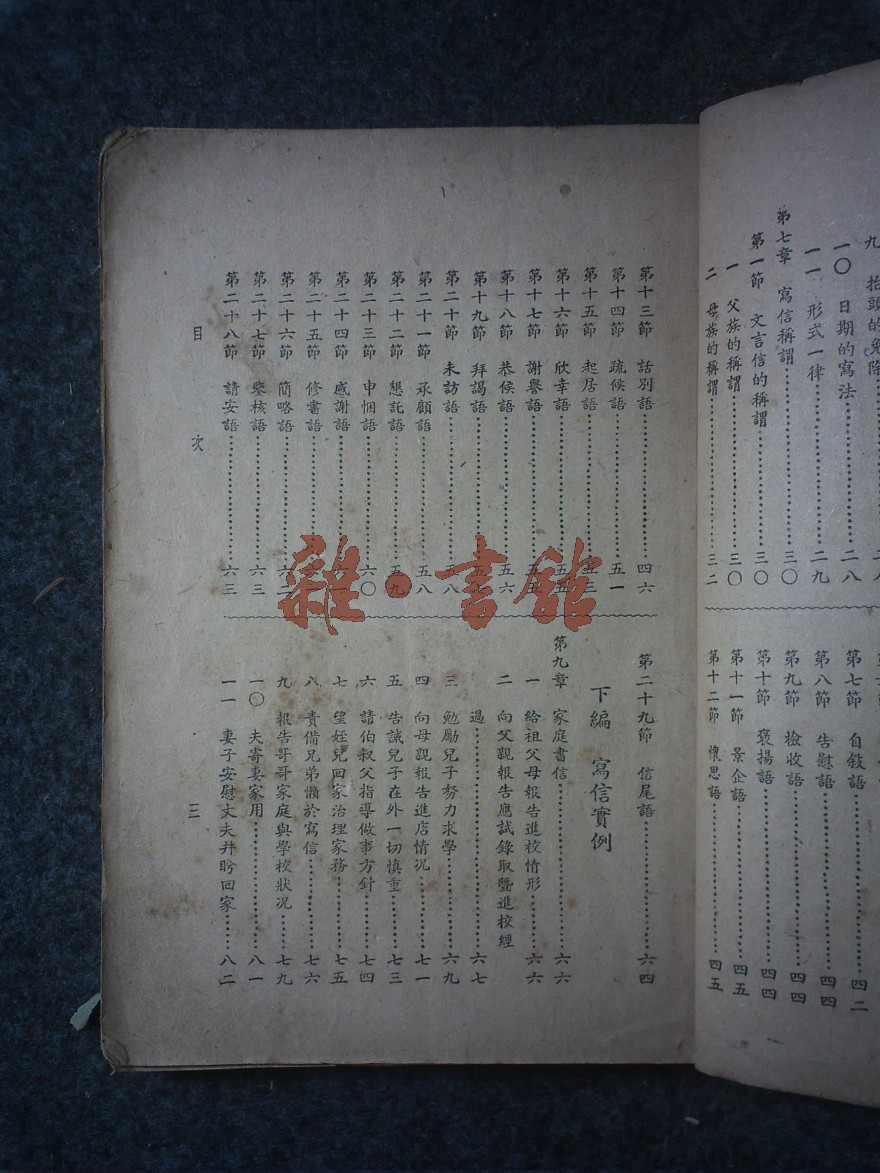 九 抬頭的免除
一〇 日期的寫法……二八
一一 形式一律……二九
第七章 寫信稱謂……三〇
第一節 文言信的稱謂……三〇
一 父族的稱謂……三〇
二 母族的稱謂……三二
第七節 自敘語……四二
第八節 告慰語……四四
第九節 檢收語……四四
第十節 褒揚語……四四
第十一節 景企語……四五
第十二節 懷思語……四五
第十三節 話別語……四六
第十四節 疏候語……五一
第十五節 起居語……五三
第十六節 欣幸語……五五
第十七節 謝譽語……五五
第十八節 恭候語……五六
第十九節 拜謁語……五七
第二十節 未訪語……五八
第二十一節 承顧語……五八
第二十二節 懇託語……五九
第二十三節 申悃語……六〇
第二十四節 感謝語……六
第二十五節 修書語……六
第二十六節 簡略語……六二
第二十七節 鑒核語……六三
第二十八節 請安語……六三
第二十九節 信尾語……六四
下編 寫信實例
第九章 家庭書信……六六
一 給祖父母報告進校情形……六六
二 向父親報告應試錄取暨進校經
過……六七
三 勉勵兒子努力求學……六九
四 向母親報告進店情況……七一
五 告誡兒子在外一切慎重……七三
六 請伯叔父指導做事方針……七四
七 望姪兒回家治理家務……七五
八 責備兄弟懶於寫信……七六
九 報告哥哥家庭與學校狀况……七九
一〇 夫寄妻家用……八一
一一 妻子安慰丈夫幷盼回家……八二
目 次
三
雜·書館